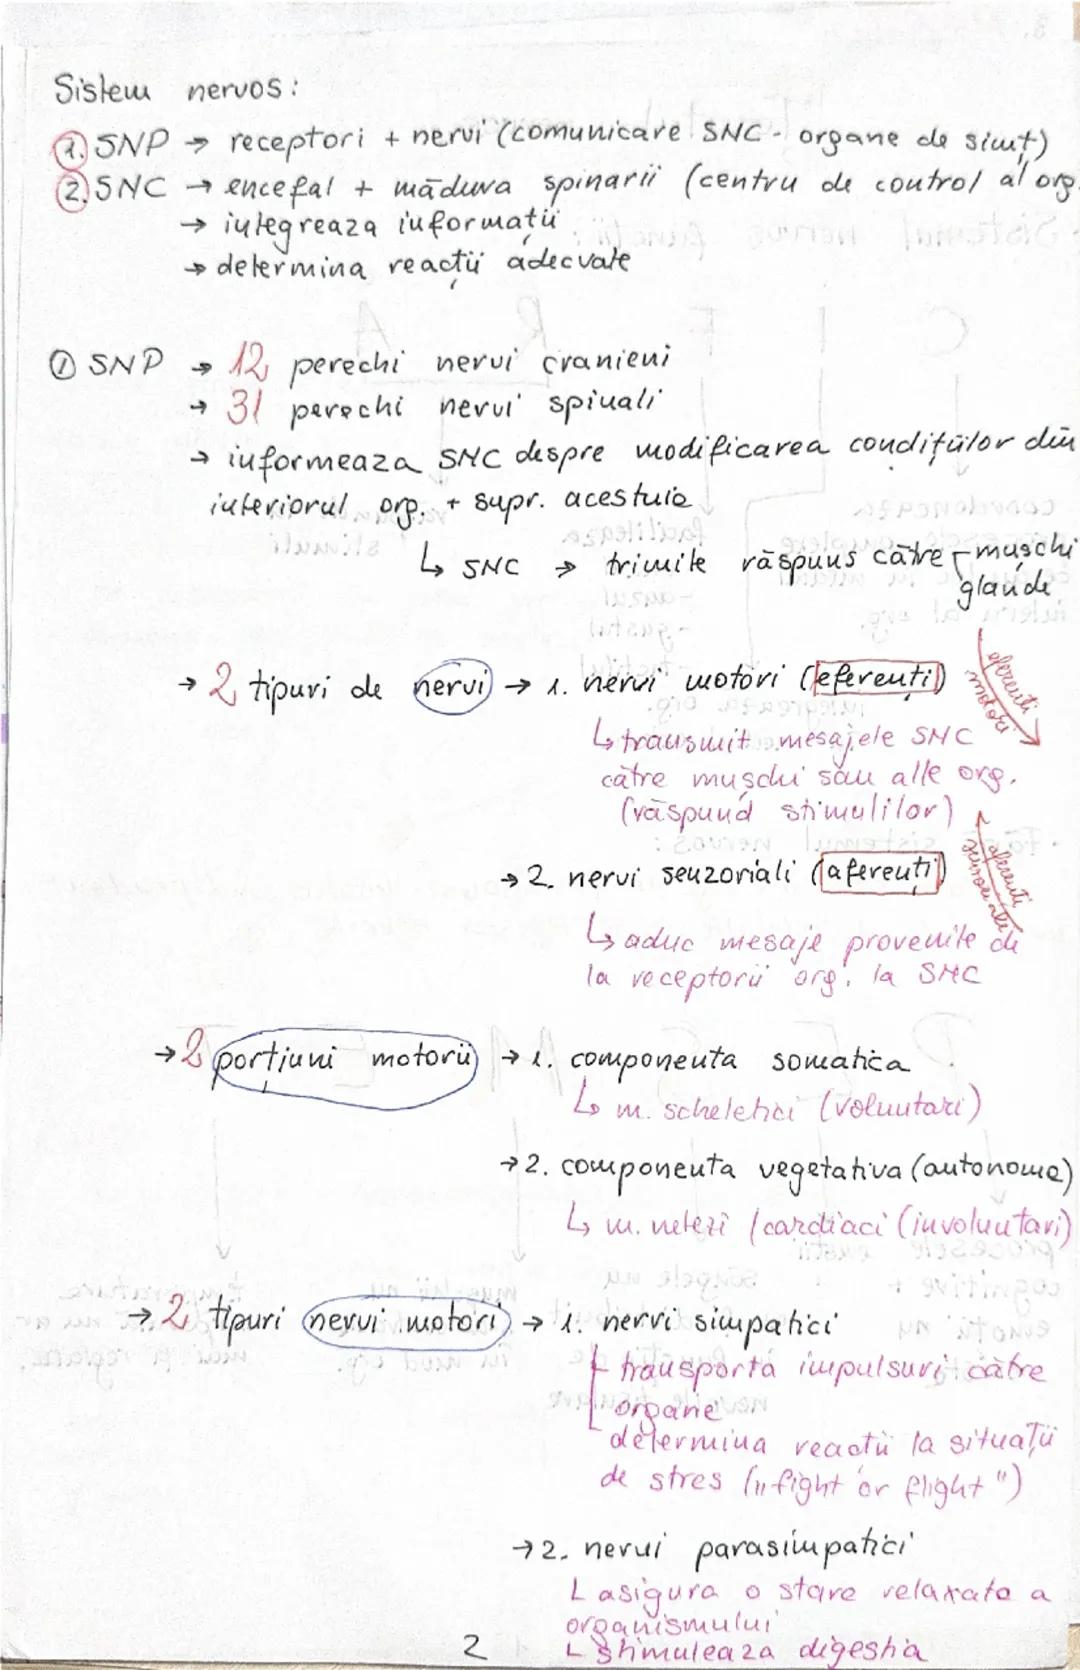 Sistem nervos:
1. SNP → receptori + nervi (comunicare SNC - organe de simț)
2. SNC → encefal + măduva spinarii (centru de control al org.
→ integreaza informații
→ determina reacții adecvate
① SNP → 12 perechi nervi cranieni
→ 31 perechi nervi spinali
→ informeaza SNC despre modificarea condițiilor din
interiorul org. + supr. acestuia
↳ SNC → trimite răspuns către mușchi
glande
→ 2 tipuri de nervi → 1. nervi motori (eferenți)
eferenti
motori
↳ transmit mesajele SNC
către mușchi sau alte org.
(răspund stimulilor)
→ 2. nervi senzoriali (aferenți)
aferenti
senzoriali
↳ aduc mesaje provenite de
la receptorii org. la SNC
→ 2 porțiuni motorii → 1. componenta somatica
↳ m. scheletici (voluntari)
→ 2. componenta vegetativa (autonoma)
↳ m. netezi / cardiaci (involuntari)
→ 2 tipuri nervi motori → 1. nervi simpatici
transporta impulsuri către
organe
determina reacții la situații
de stres („fight or flight")
→ 2. nervi parasimpatici
asigura o stare relaxata a
organismului
stimuleaza digestia
2